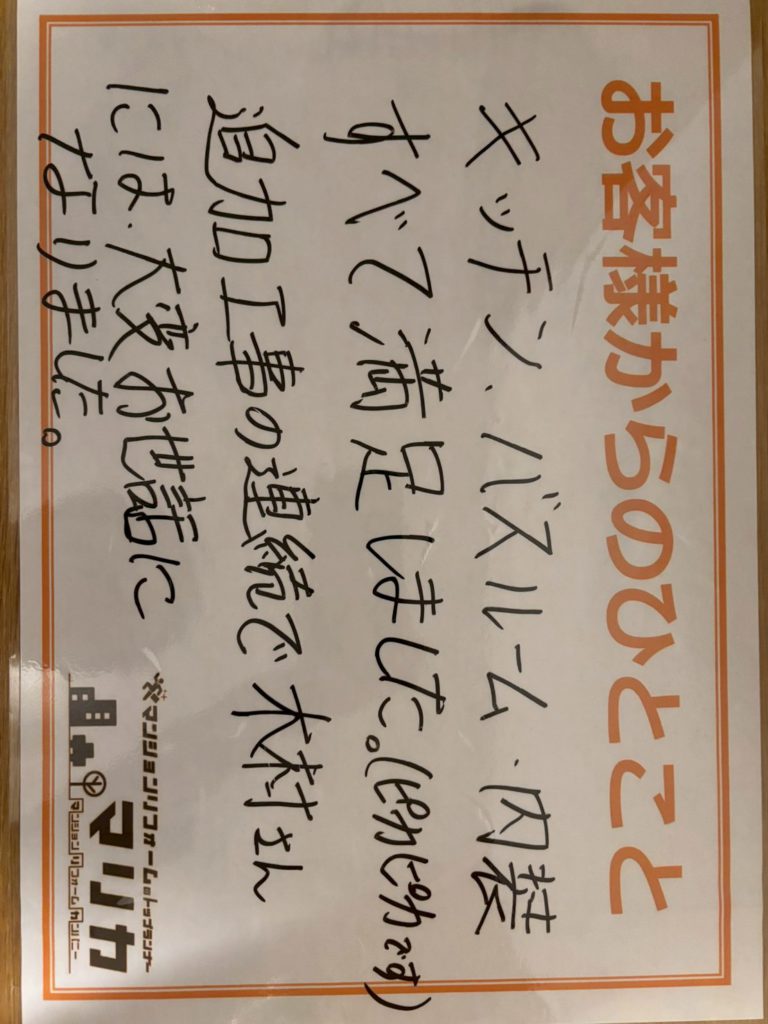 お客様からのひとこと
キッチン、バスルーム、内装
すべて満足しました。(ピカピカです)
追加工事の連続で木村さん
には、大変お世話に
なりました。
マンションリフォームのトップランナー
マリカ
マンションリフォームカンパニー